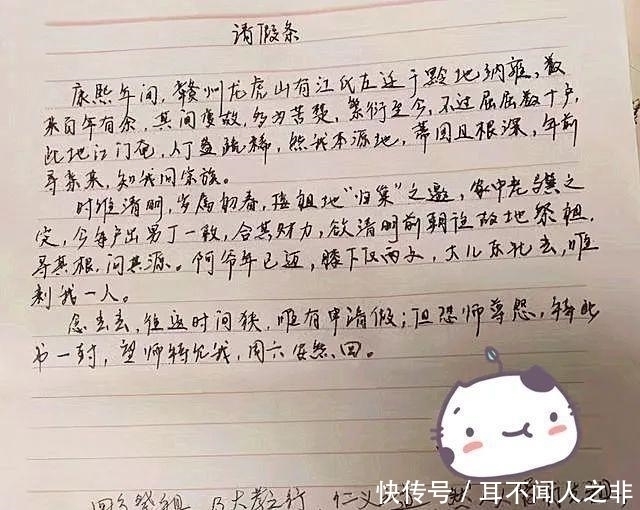 请假条
康熙年间,赣州龙虎山有江氏左迁于黔地纳雍,数
来百年有余,其间变故,多为苦楚,繁衍至今,不过屈屈数十户,
此地江门奄,人丁益疏稀,然我本源地,蒂固且根深,年前
寻亲来,知我同宗族。
时维清明,岁属初春,接祖地“归集”之邀,家中老与其之
定,今每户出男丁一致,合其财力,欲清明前朝往故地祭祖,
寻其根,问其源。阿爷年已迈,膝下仅两子,大儿东北去,唯
剩我一人。
念去去,往返时间狭,唯有申请假;但恐师尊怨,特此
书一封,望师特允我,周六安然回。
回乡祭祖,乃大孝之行,仁义
快传号/耳不闻人之非